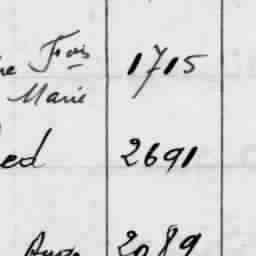 Fois 1715
Marie
ed 2691
2089